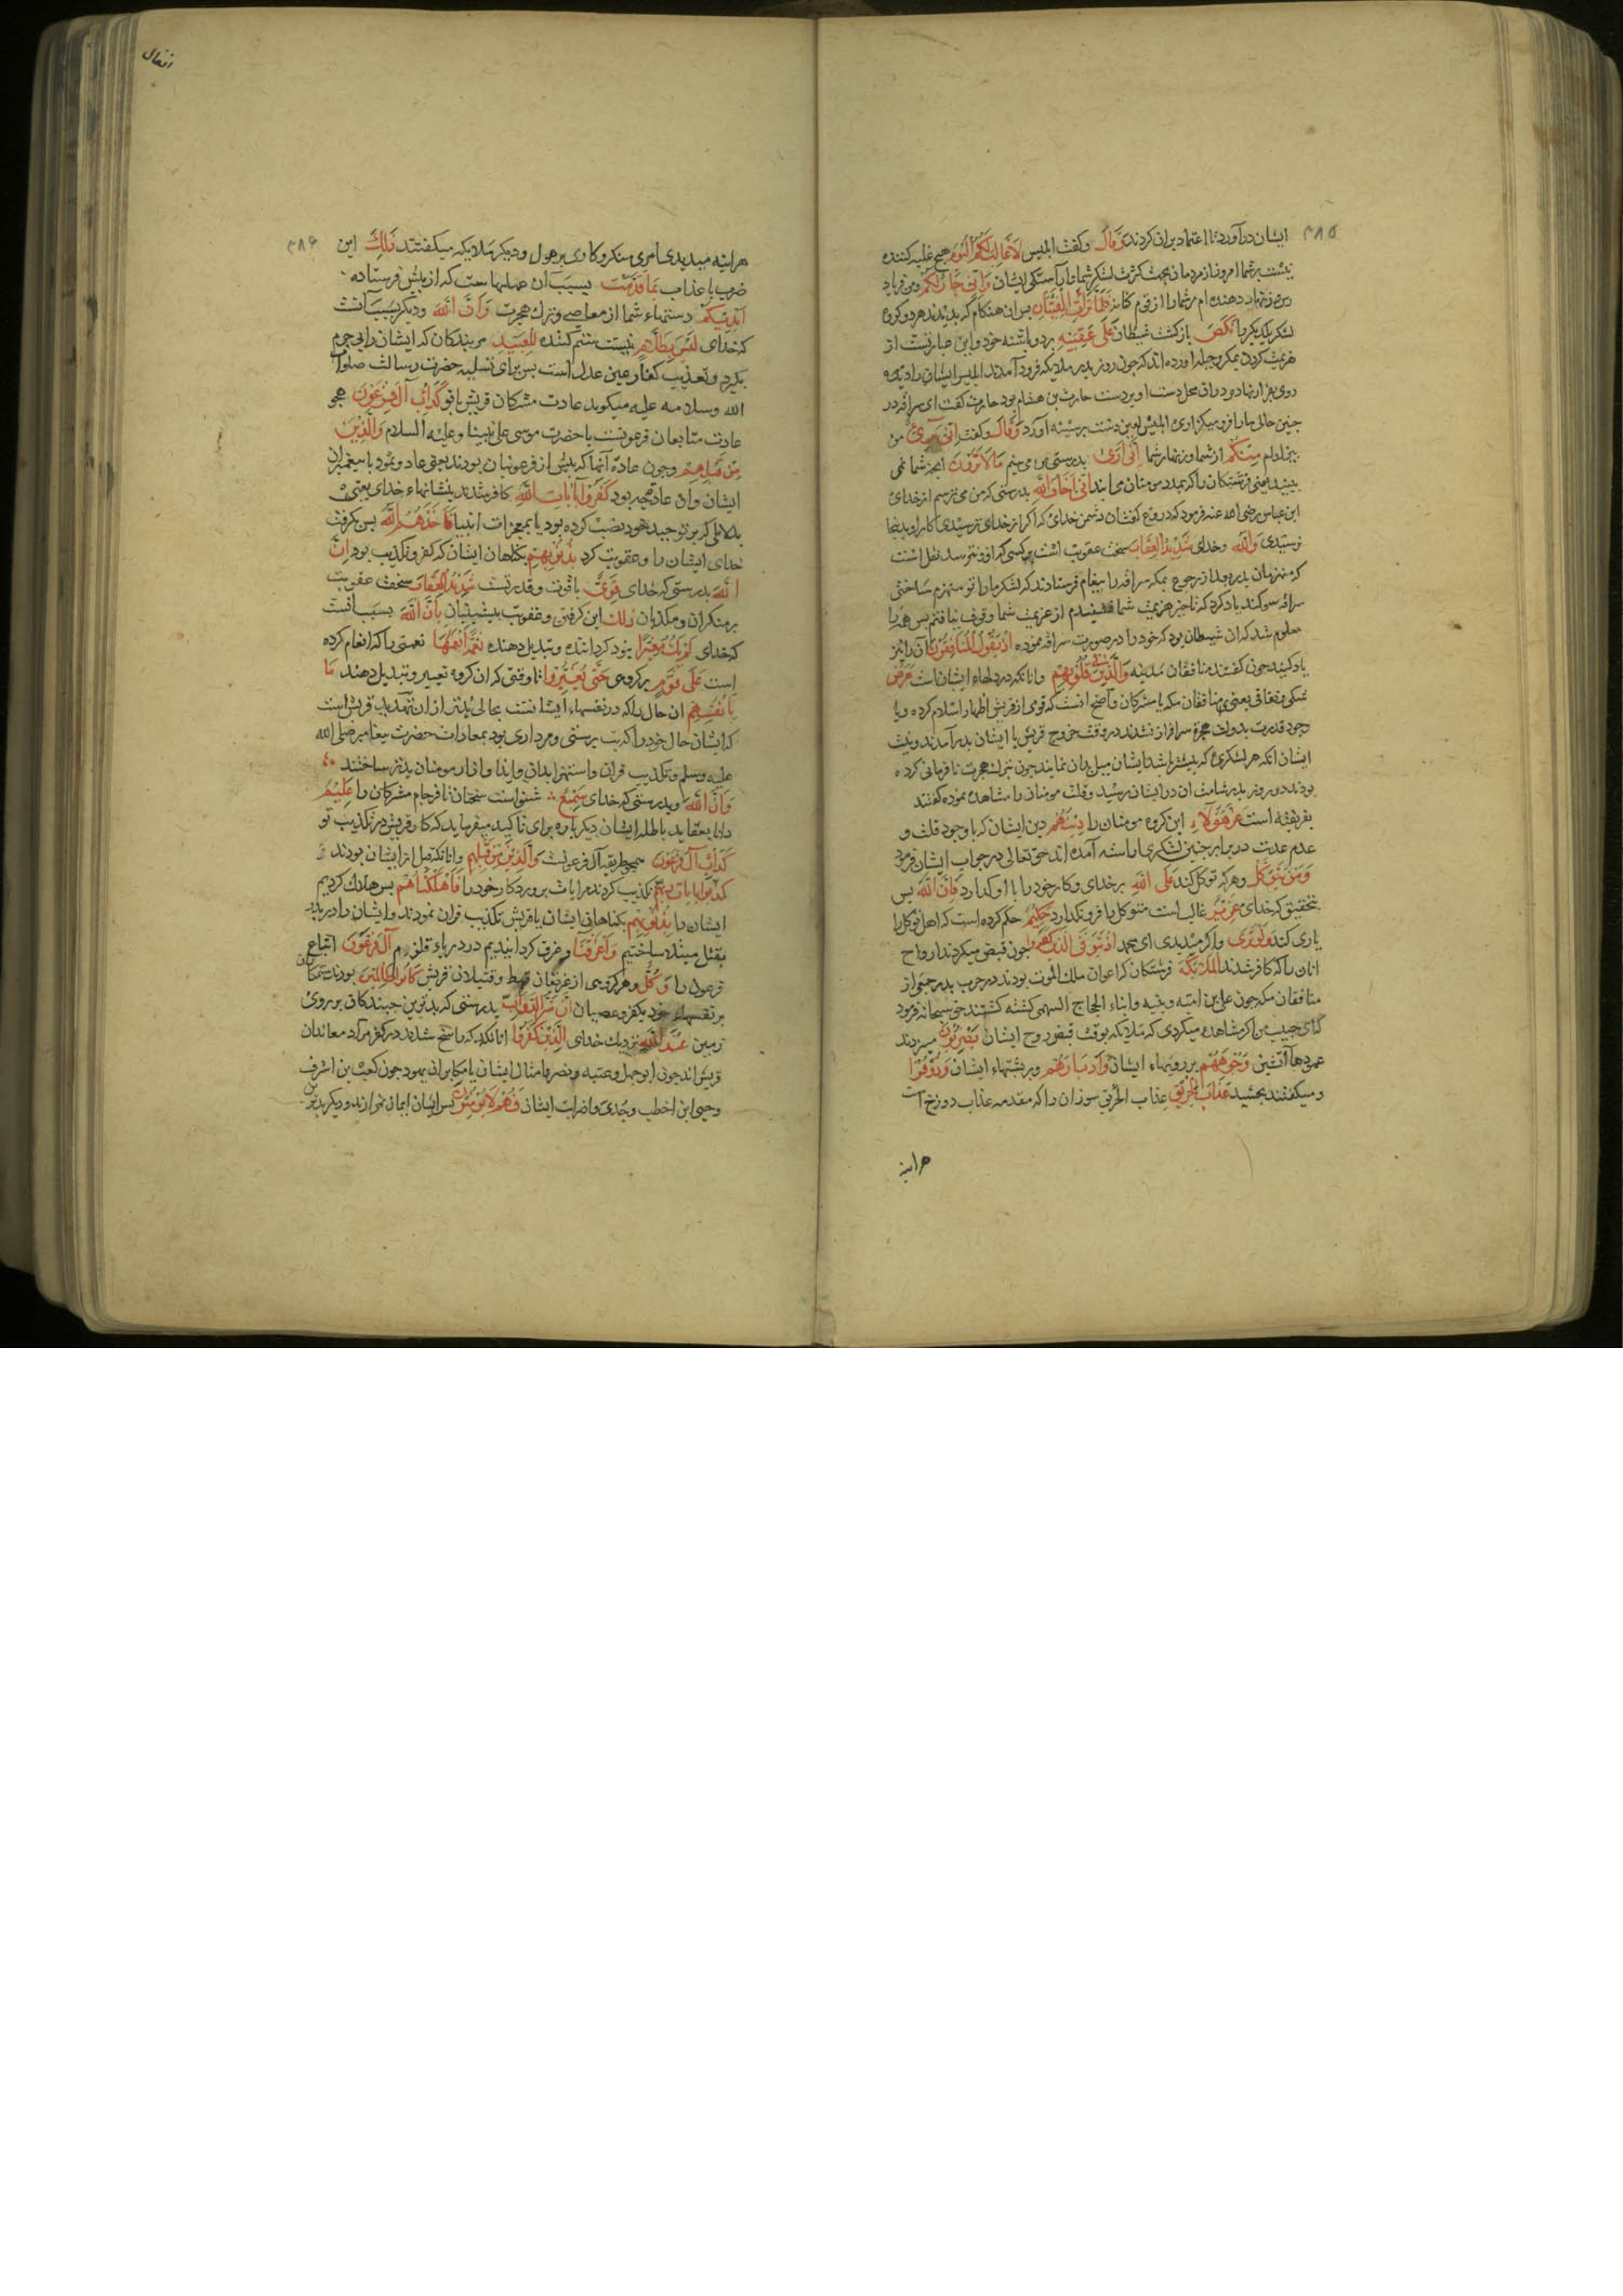 ۳۸۵
ایشان درآورد تا اعتماد بران کردند وَقَالَ وگفت ابلیس لَا غَالِبَ لَكُمُ الْيَوْمَ هیچ غلبه کننده
نیست بر شما امروز از مردمان بجهت کثرت لشکر شما و آراستگی ایشان وَاِنِّی جَارٌ لَكُمْ ومن فریاد
رس و زنهار دهنده ام مر شما را از قوم کنانه فَلَمَّا تَرَاءَتِ الْفِئَتَانِ پس ان هنکام که بدیدند هر دو کروه
لشکر یکدیکر را نَكَصَ بازکشت شیطان عَلَى عَقِبَيْهِ بر دو پاشنه خود و این عبارتست از
هزیمت کردن بمکر و حیله اورده اند که چون روز بدر ملایکه فرود آمدند ابلیس ایشان را دیده
روی بفرار نهاد و دران محل دست او بر دست حارث بن هشام بود حارث کفت ای سراقه در
چنین حالی ما را فرو میکزاری ابلیس لعین دست بر سینه او زد وَقَالَ وکفت اِنِّی بَرِیءٌ من
بیزارم مِنْكُمْ از شما و زنهار شما اِنِّی اَرَى بدرستی من می بینم مَا لَا تَرَوْنَ انچه شما نمی
بینید یعنی فرشتکان را که بمدد مومنان می ایند اِنِّی اَخَافُ اللّٰهَ بدرستی که من می ترسم از خدای
ابن عباس رضی الله عنه فرمود که دروغ کفت ان دشمن خدای که اکر از خدای ترسیدی کار او بدینجا
نرسیدی وَاللّٰهُ وخدای شَدِیدُ الْعِقَابِ سخت عقوبت است بر کسی که ازو نترسد نقل است
که منهزمان بدر بعد از رجوع بمکه سراقه را پیغام فرستادند که لشکر ما را تو منهزم ساختی
سراقه سوکند یاد کرد که تا خبر هزیمت شما نشنیدم از عزیمت شما وقوف نیافتم پس همه را
معلوم شد که ان شیطان بود که خود را در صورت سراقه نموده اِذْ يَقُولُ الْمُنَافِقُونَ آن را نیز
یاد کنید چون کفتند منافقان مدینه وَالَّذِینَ فِی قُلُوبِهِمْ وانانکه در دلهاء ایشان است مَرَضٌ
شکی و نفاقی یعنی منافقان مکه یا مشرکان واصح انست که قومی از قریش اظهار اسلام کرده وبا
وجود قدرت بدولت هجرة سرافراز نشدند در وقت خروج قریش با ایشان بدر آمدند ونیت
ایشان انکه هر لشکری که بیشتر باشد ایشان میل بدان نمایند چون بترک هجرت نافرمانی کرده
بودند در روز بدر شامت ان در ایشان رسید وقلت مومنان را مشاهده نموده کفتند
بفریفته است غَرَّ هٰؤُلَاءِ این کروه مومنان را دِینُهُمْ دین ایشان که با وجود قلت و
عدم عدت در برابر چنین لشکری اراسته آمده اند حق تعالی در جواب ایشان فرمود
وَمَنْ يَتَوَكَّلْ وهرکه توکل کند عَلَى اللّٰهِ بر خدای وکار خود را با او کذارد فَاِنَّ اللّٰهَ پس
بتحقیق که خدای عَزِیزٌ غالب است متوکل را فرو نکذارد حَكِیمٌ حکم کرده است که اهل توکل را
یاری کند وَلَوْ تَرَى واکر میدیدی ای محمد اِذْ يَتَوَفَّى الَّذِینَ كَفَرُوا چون قبض میکردند ارواح
انان را که کافر شدند الْمَلَائِكَةُ فرشتکان که اعوان ملک الموت بودند در حرب بدر جمعی از
منافقان مکه چون علی بن امیه وبنیه وابناء الحجاج السهمی کشته کشتند حق سبحانه فرمود
که ای حبیب من اکر مشاهده میکردی که ملایکه بوقت قبض روح ایشان يَضْرِبُونَ میزدند
عمودها آتشین وُجُوهَهُمْ بر رویهاء ایشان وَاَدْبَارَهُمْ وبر پشتهاء ایشان وَذُوقُوا
ومیکفتند بچشید عَذَابَ الْحَرِیقِ عذاب الحریق سوزان را که مقدمه عذاب دوزخ است
هراینه
انفال
۳۸۶
هراینه میدیدی امری منکر وکاری پرهول ودیکر ملایکه میکفتند ذٰلِكَ این
ضرب یا عذاب بِمَا قَدَّمَتْ بسبب آن عملهاست که از پیش فرستاده
اَیْدِیكُمْ دستهاء شما از معاصی وترک هجرت وَاَنَّ اللّٰهَ ودیکر بسبب آنست
که خدای لَيْسَ بِظَلَّامٍ نیست ستم کننده لِلْعَبِیدِ مر بندکان که ایشان را بی جرم
بکیرد وتعذیب کفار عین عدل است پس برای تسلیه حضرت رسالت صلوات
الله وسلامه علیه میکوید عادت مشرکان قریش با تو كَدَاْبِ اٰلِ فِرْعَوْنَ همچو
عادت متابعان فرعونست با حضرت موسی علی نبینا وعلیه السلام وَالَّذِینَ
مِنْ قَبْلِهِمْ وچون عادة آنها که پیش از فرعونیان بودند یعنی عاد وثمود با پیغمبران
ایشان وان عادت چه بود كَفَرُوا بِاٰیَاتِ اللّٰهِ کافر شدند بنشانهاء خدای یعنی
بدلایلی که بر توحید خود نصب کرده بود یا بمعجزات انبیا فَاَخَذَهُمُ اللّٰهُ پس بکرفت
خدای ایشان را وعقوبت کرد بِذُنُوبِهِمْ بکناهان ایشان که کفر وتکذیب بود اِنَّ
اللّٰهَ بدرستی که خدای قَوِیٌّ باقوت وقدرتست شَدِیدُ الْعِقَابِ سخت عقوبت
بر منکران ومکذبان ذٰلِكَ این کرفتن وعقوبت پیشینیان بِاَنَّ اللّٰهَ بسبب انست
که خدای لَمْ يَكُ مُغَيِّرًا نبود کرداننده وتبدیل دهنده نِعْمَةً اَنْعَمَهَا نعمتی را که انعام کرده
است عَلَى قَوْمٍ بر کروهی حَتَّى يُغَيِّرُوا تا وقتی که ان کروه تغییر وتبدیل دهند مَا
بِاَنْفُسِهِمْ ان حال را که در نفسهاء ایشانست بحالی بدتر ازان تهدید قریش است
که ایشان حال خود را که بت پرستی ومرداری بود بمعادات حضرت پیغامبر صلی الله
علیه وسلم وتکذیب قران واستهزا بدان وایذا وازار مومنان بدتر ساختند
وَاَنَّ اللّٰهَ وبدرستی که خدای سَمِیعٌ شنواست سخنان نافرجام مشرکان را عَلِیمٌ
دانا بعقاید باطله ایشان دیکرباره برای تاکید میفرماید که کار قریش در تکذیب تو
كَدَاْبِ اٰلِ فِرْعَوْنَ همچو طریقه آل فرعونست وَالَّذِینَ مِنْ قَبْلِهِمْ وانانکه قبل از ایشان بودند
كَذَّبُوا بِاٰیَاتِ رَبِّهِمْ تکذیب کردند مر ایات پروردکار خود را فَاَهْلَكْنَاهُمْ پس هلاک کردیم
ایشان را بِذُنُوبِهِمْ بکناهان ایشان یا قریش تکذیب قران نمودند وایشان را در بدر
بقتل مبتلا ساختیم وَاَغْرَقْنَا وغرق کردانیدیم در دریاء قلزم اٰلَ فِرْعَوْنَ اتباع
فرعون را وَكُلٌّ وهر کروهی از غریقان قبط وقتیلان قریش كَانُوا ظَالِمِینَ بودند ستمکاران
بر نفسهاء خود بکفر وعصیان اِنَّ شَرَّ الدَّوَابِّ بدرستی که بدترین جنبندکان بر روی
زمین عِنْدَ اللّٰهِ نزدیک خدای الَّذِینَ كَفَرُوا انانکه راسخ شدند در کفر مراد معاندان
قریش اند چون ابوجهل وعتبه ونضر وامثال ایشان یا مکابران یهود چون کعب بن اشرف
وحیی ابن اخطب وجدی واضراب ایشان فَهُمْ لَا يُؤْمِنُونَ پس ایشان ایمان نیارند ودیکر بدترین